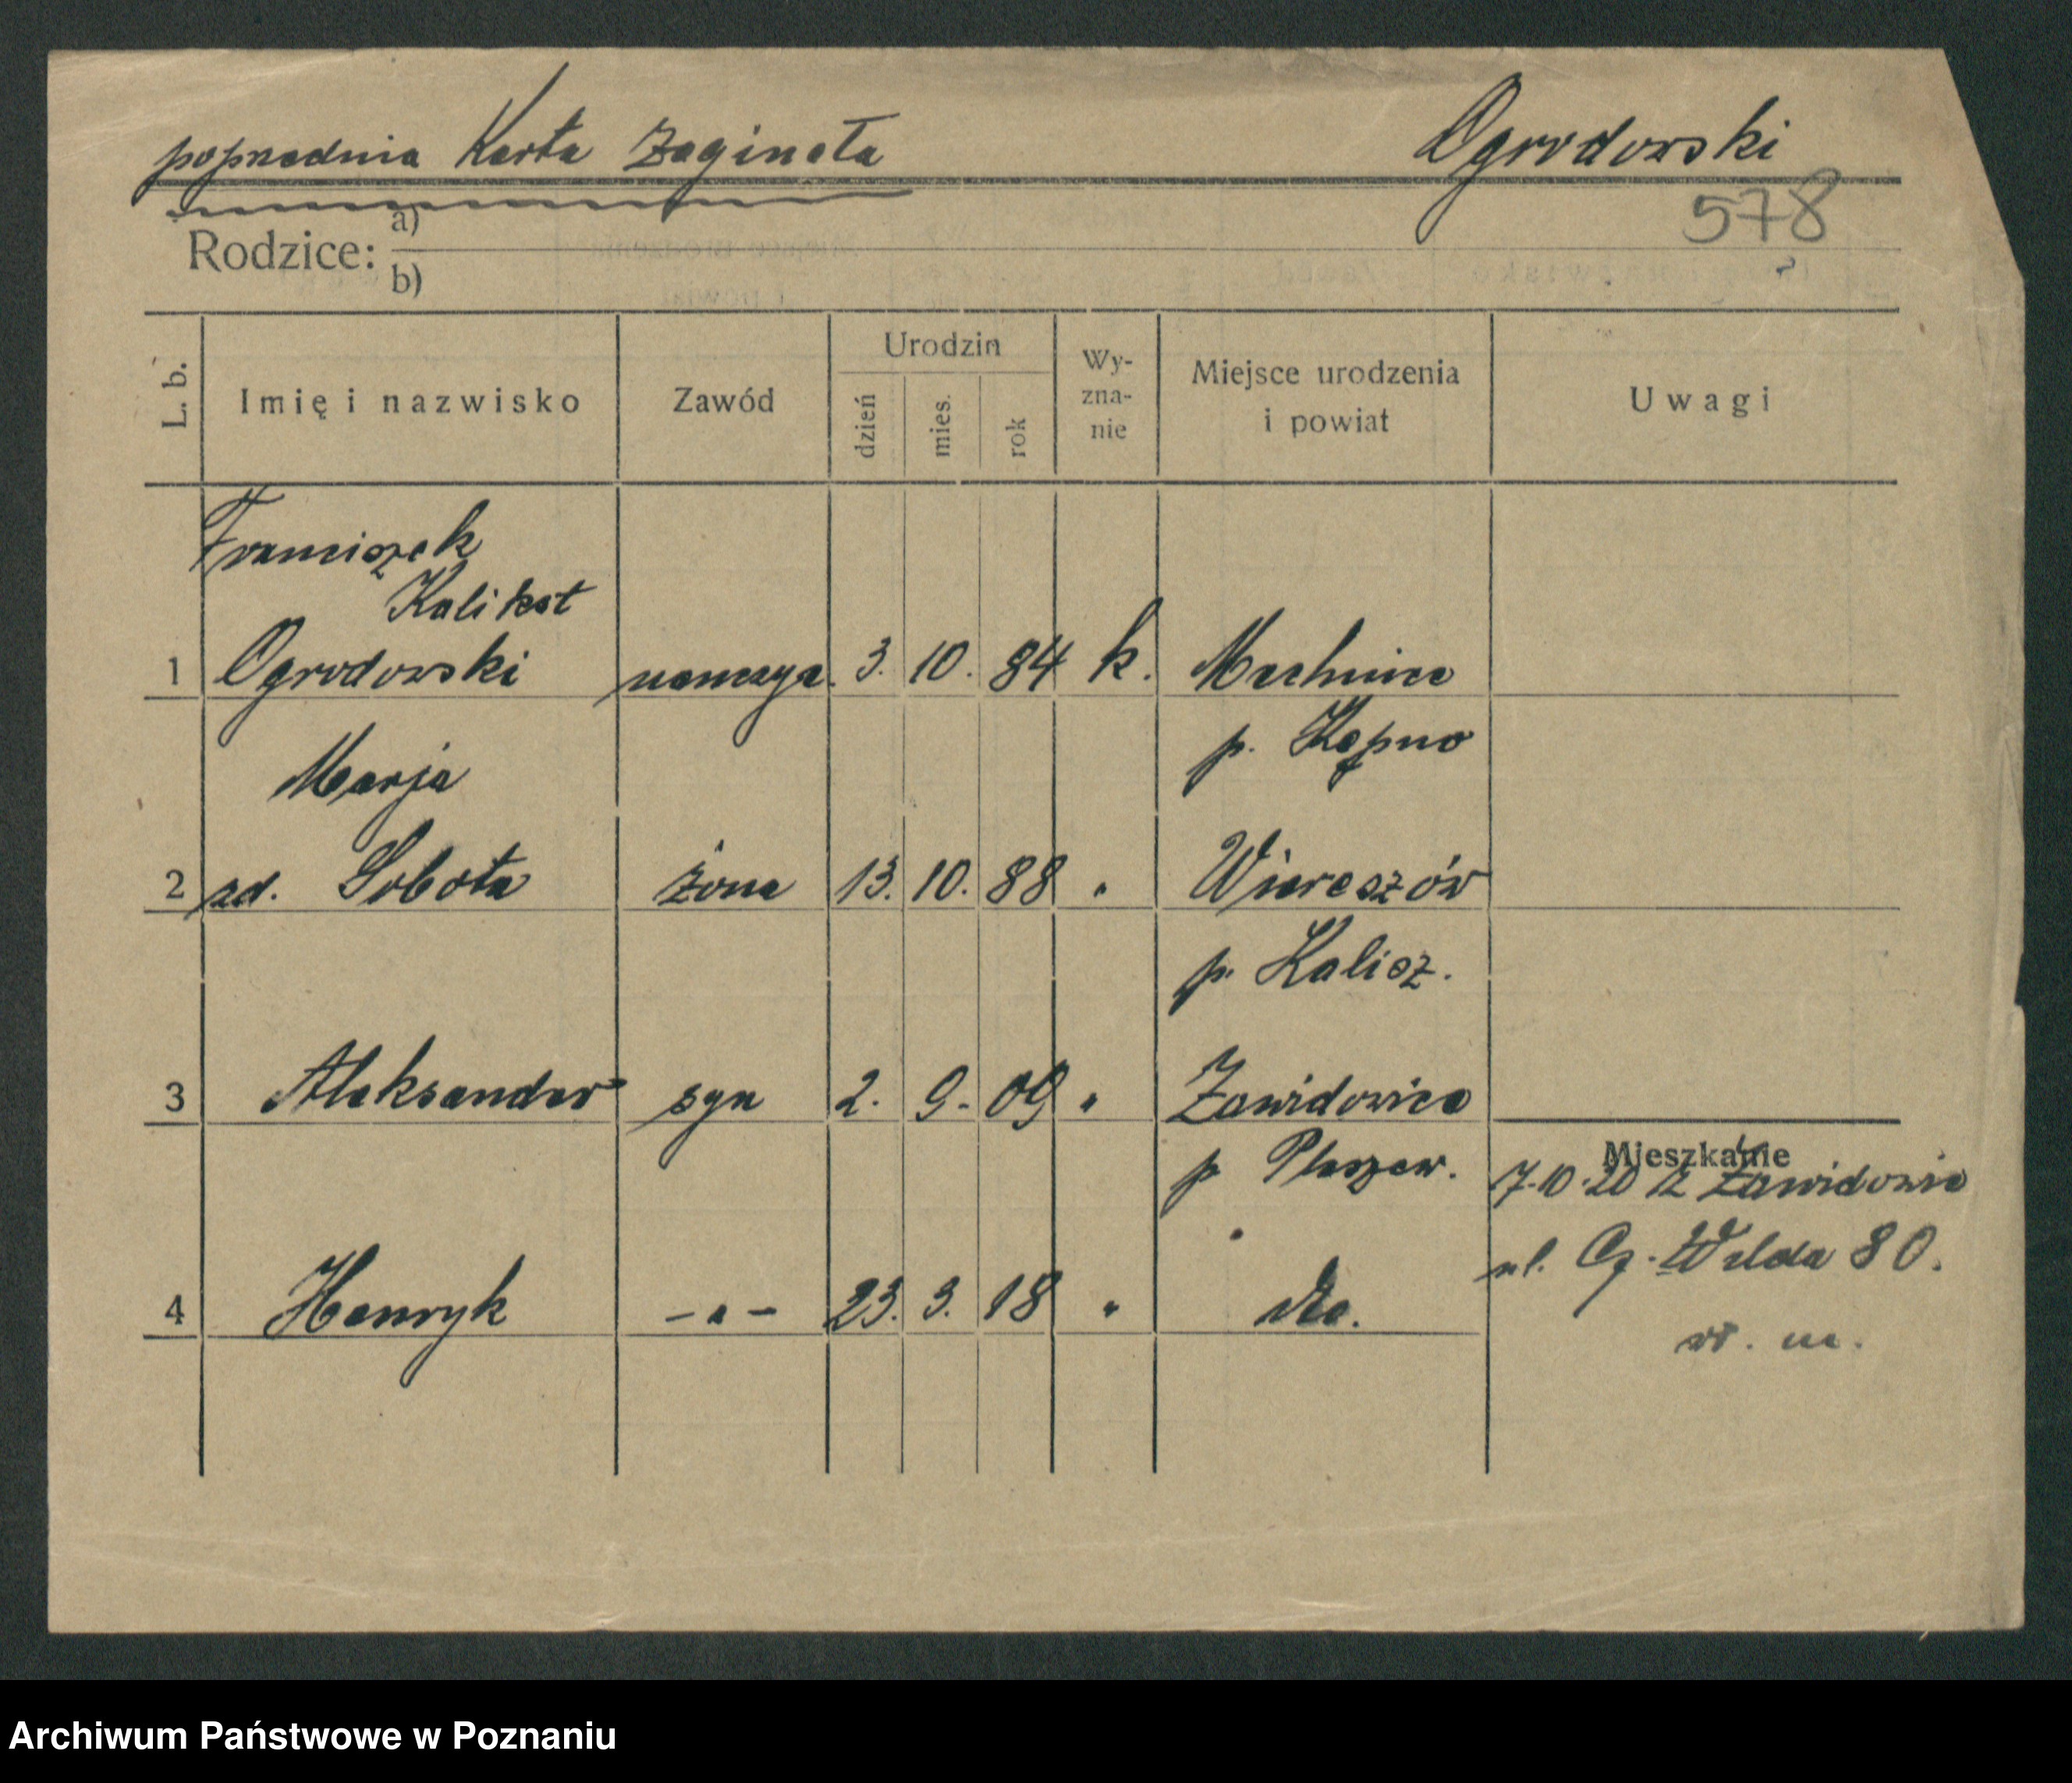 poprzednia Karta zaginęła Ogrodowski
578
Rodzice: a)
b)
L. b. Imię i nazwisko Zawód Urodzin dzień mies. rok Wy-zna-nie Miejsce urodzenia i powiat Uwagi
Franciszek
Kalikst
1 Ogrodowski nauczyc. 3. 10. 84 k. Mechnice
p. Kępno
Marja
2 zd. Sobota żona 13. 10. 88 " Wieruszów
p. Kalisz.
3 Aleksander syn 2. 9. 09 " Zawidowice
p Pleszew.
Mieszkanie
7.10.20 z Zawidowic
ul. Wilda 80.
4 Henryk – " – 23. 3. 18 " dto.
w. m.
Archiwum Państwowe w Poznaniu